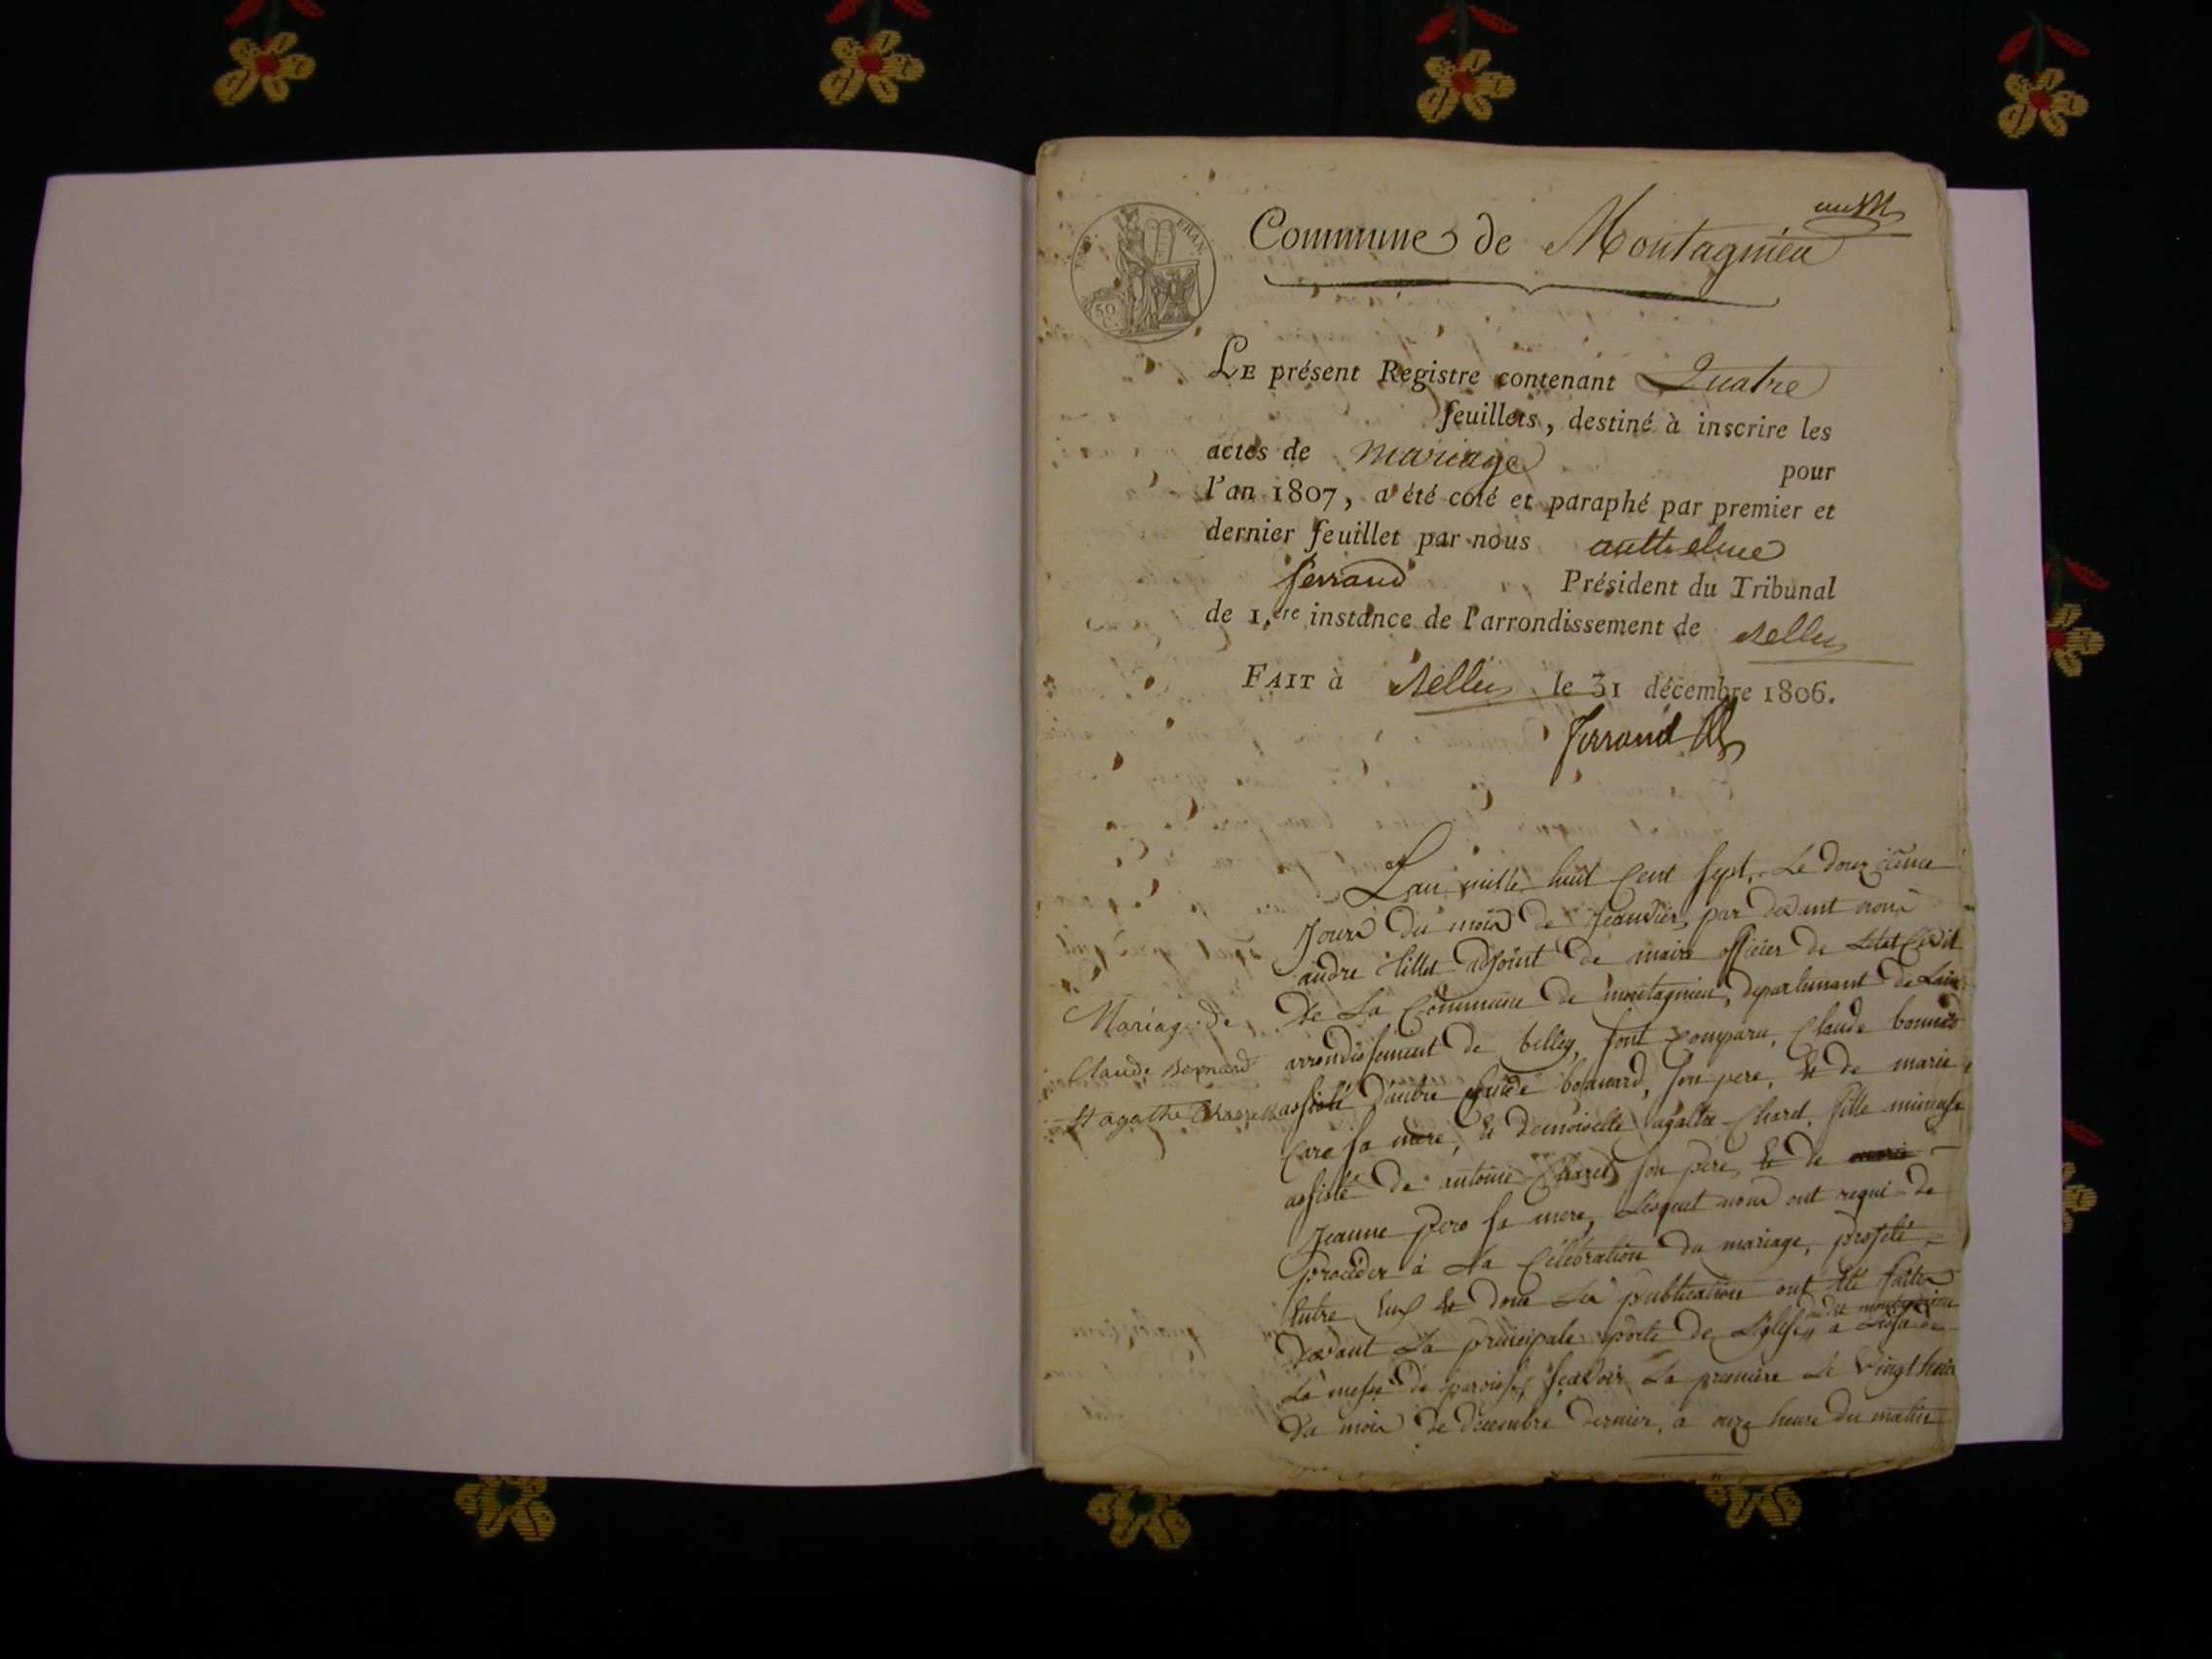 EMP. FRAN.
50
C.
Commune de Montagnieu
LE présent Registre contenant Quatre
feuillets, destiné à inscrire les
actes de mariage pour
l'an 1807, a été coté et paraphé par premier et
dernier feuillet par nous anthelme
ferrand Président du Tribunal
de 1.ere instance de l'arrondissement de Belley
FAIT à Belley le 31 décembre 1806.
ferrand
L'an mille huit Cent sept, Le douzieme
Jours du mois de Jeanvier, par devant nous
andre tillet adjoint de maire officier de Letat Civil
De La Commune de montagnieu, departemant de Lain
arrondissement de belley, sont comparu, Claude bonnard
assisté d'autre Claude bonnard, son pere, Et de marie
Care sa mere, Et demoiselle agathe Charel, fille mineuse
assisté de antoine Charel son pere, Et de
Jeanne pero sa mere, Lesquel nous ont requi de
proceder à La Célébration du mariage, projeté
Entre Eux Et dont Les publication ont Eté faites
devant La principale porte de Léglise dudit montagnieu a
La messe de paroisse, scavoir La premiere Le vingt huit
Du mois de decembre dernier, a onze heure du matin
Mariage de
Claude Bonnard
Et agathe